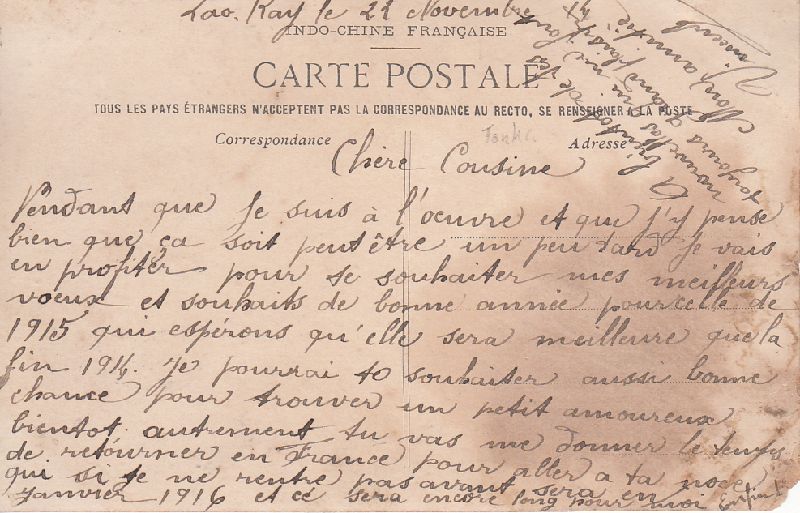 Lao-Kay le 22 Novembre 14
INDO-CHINE FRANÇAISE
CARTE POSTALE
TOUS LES PAYS ÉTRANGERS N'ACCEPTENT PAS LA CORRESPONDANCE AU RECTO, SE RENSEIGNER A LA POSTE
Correspondance
Adresse
Chère Cousine
Pendant que Je suis à l'œuvre et que j'y pense
bien que ça soit peut être un peu tard Je vais
en profiter pour se souhaiter mes meilleurs
voeux et souhaits de bonne année pour celle de
1915 qui esperons qu'elle sera meilleure que la
fin 1914. Je pourrai to souhaiter aussi bonne
chance pour trouver un petit amoureux
bientot autrement tu vas me donner le temps
de retourner en France pour aller a ta noce
qui si je ne rentre pas avant sera en
Janvier 1916 et ce sera encore long pour moi Enfin
a bientot de tes
nouvelles qui me font
toujours grand plaisir
Mon amitié
Vincent